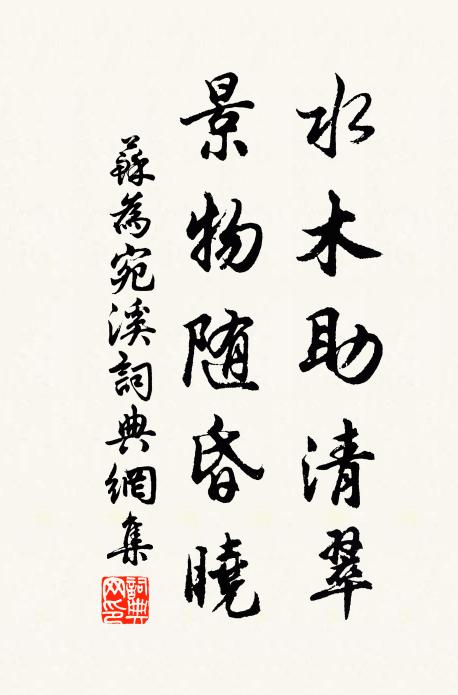 水木助清翠
景物随昏曉
蘇為宛溪詞典網集
詞典网印